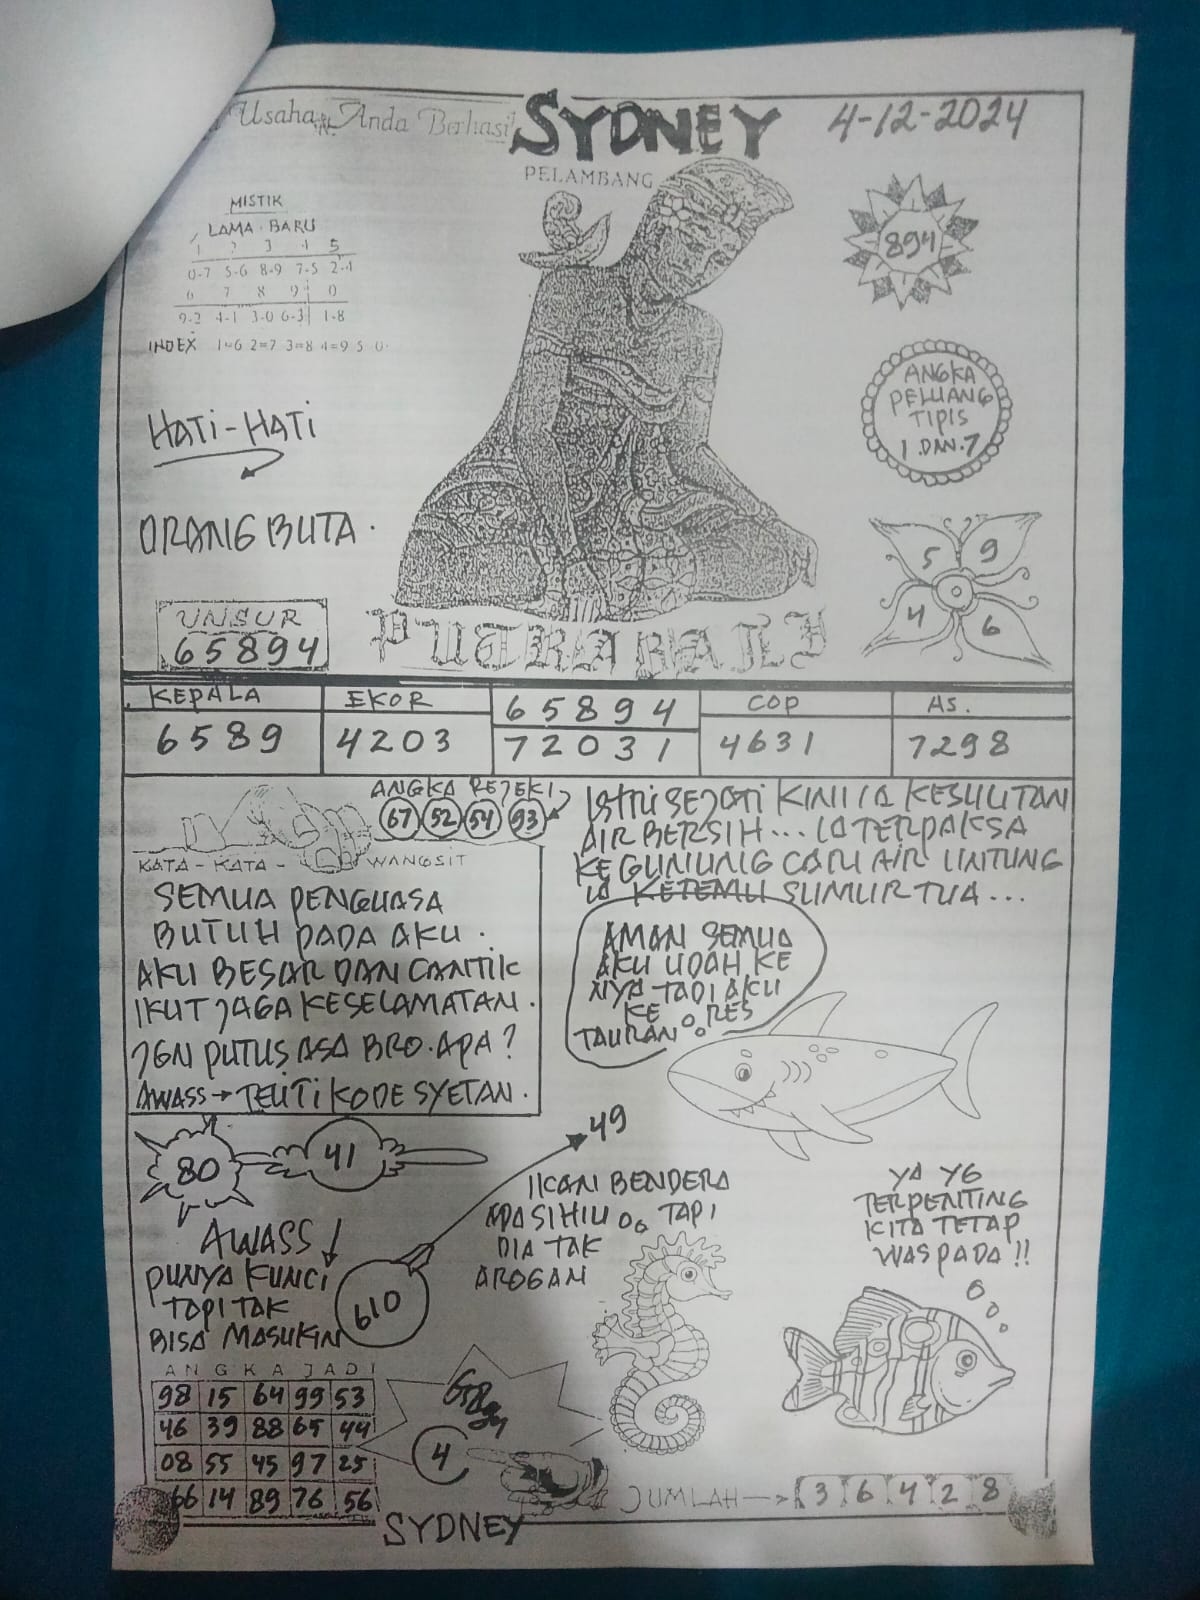 Usaha Anda Berhasil
SYDNEY
4-12-2024
PELAMBANG
MISTIK
LAMA . BARU
1 2 3 4 5
0-7 5-6 8-9 7-5 2-4
6 7 8 9 0
9-2 4-1 3-0 6-3 1-8
INDEX 1=6 2=7 3=8 4=9 5 0
894
ANGKA
PELUANG
TIPIS
1 DAN 7
HATI-HATI
ORANG BUTA.
5 9
4 6
UNSUR
65894
PUTRA BALI
KEPALA
6589
EKOR
4203
65894
72031
COP
4631
AS.
7298
ANGKA REJEKI
67 52 54 93
KATA - KATA - WANGSIT
SEMUA PENGUASA
BUTUH PADA AKU.
AKU BESAR DAN CANTIK
IKUT JAGA KESELAMATAN.
JGN PUTUS ASA BRO. APA?
AWASS → TELITI KODE SYETAN.
ISTRI SEJATI KINI IA KESULITAN
AIR BERSIH... IA TERPAKSA
KE GUNUNG CARI AIR UNTUNG
IA KETEMU SUMUR TUA...
AMAN SEMUA
AKU UDAH KE
NYA TADI AKU
KE RES
TAURAN
80
41
49
610
AWASS
PUNYA KUNCI
TAPI TAK
BISA MASUKIN
IKAN BENDERA
APA SIH IU TAPI
DIA TAK
AROGAN
YA YG
TERPENTING
KITA TETAP
WASPADA!!
ANGKA JADI
98 15 64 99 53
46 39 88 65 44
08 55 45 97 25
66 14 89 76 56
4
SYDNEY
JUMLAH → 3 6 4 2 8